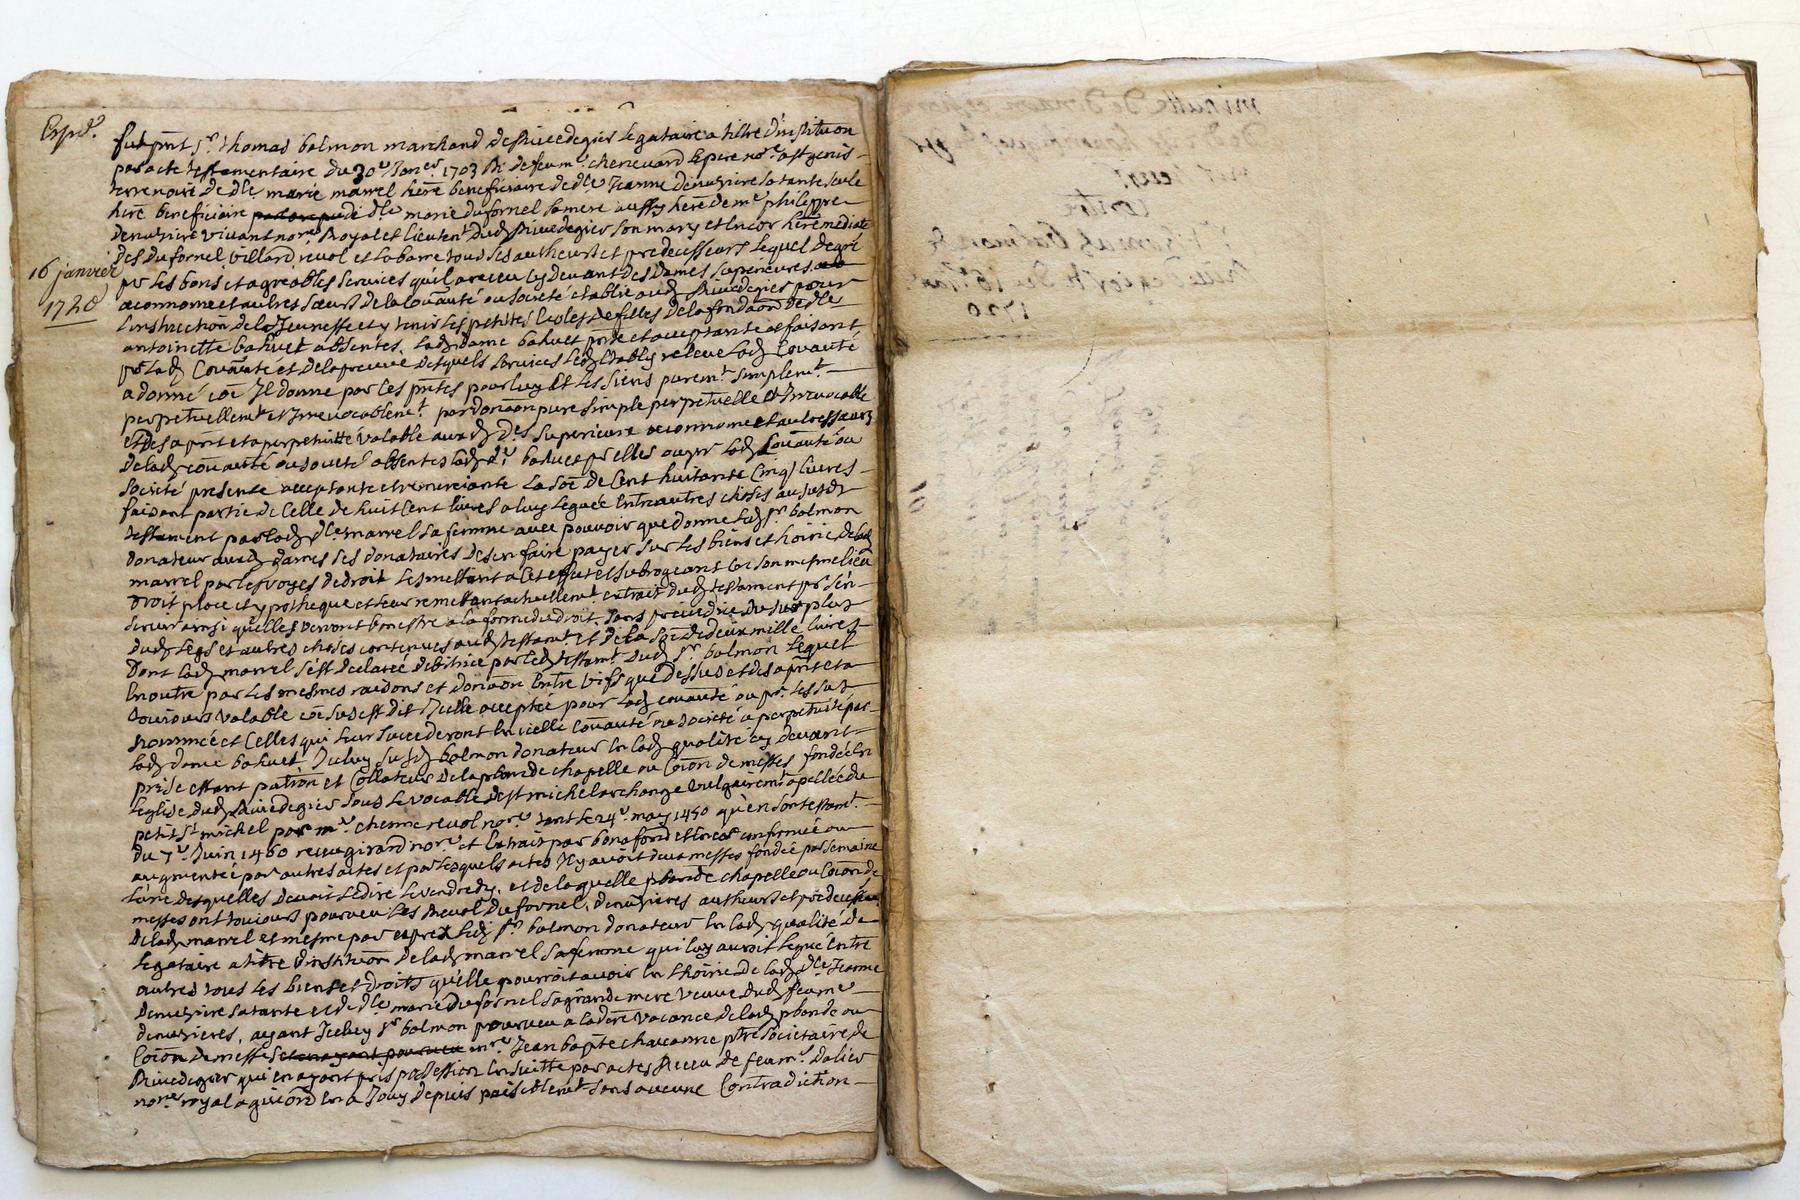 Expd.
fut pnt Sr. thomas balmon marchand de Rivedegier legataire a tiltre d'institution
par acte testamentaire du 30e Janer 1703 Rt de feu mr. chenevard Lepere nore a st genis
terrenoire de dlle marie marrel here beneficiaire de dlle Jeanne denuziere sa tante seule
here beneficiaire de dlle marie dufornel sa mere aussy here de me philippe
denuziere vivant nore Royal et lieutent dud Rivedegier son mary et encor here mediate
des dufornel villard revol et labarre tous ses autheurs et predecesseurs Lequel de gré
16 janvier
1720
pr les bons et agreables services qu'il a receu cy devant des Dames superieures
oeconnome et autres soeurs de la Couauté ou societé establie aud Rivedegier pour
L'instruction de la Jeunesse et y tenir les petites Ecoles de filles de la fondaon de dlle
antoinette bahuet absentes, lad dame bahuet pnte et acceptante et faisant
pr lad Couauté et de la preuve desquels services led establis releve lad Couauté
a donné coe Il donne par ces pntes pour luy et les siens purement simplemt
perpetuellemt et Irrevocablemt par donaon pure simple perpetuelle et Irrevocable
et des a pnt et a perpetuitté valable aux d des superieure oeconnome et autres soeurs
de lad couauté ou societé absentes lad de bahuet pr elles ou pr lad Couauté ou
societé presente acceptante et remerciante la soe de Cent huitante Cinq livres
faisant partie de Celle de huit Cent livres a luy leguée entre autres choses au susd
testament par lad dlle marrel sa femme avec pouvoir que donne led sr balmon
donateur aux d dames ses donataires de s'en faire payer sur les biens et hoirie de lad
marrel par les voyes de droit les mettant a Cet effet et subrogeant en son mesme lieu
droit place et ypotheque et leur remettant actuellemt extrait dud testament pr s'en
servir ainsi qu'elles verront bon estre a la forme du droit, sans prejudice du surplus
dud Legs et autres choses contenues aud testamt et de la soe de deux mille livres
Dont lad marrel s'est declarée debitrice par led testamt dud sr balmon Lequel
en outre par les mesmes raisons et donaon entre vifs que dessus et des a pnt et a
toujours valable coe susest dit Icelle acceptée pour lad couauté ou pr les sus
nommée et Celles qui leur succederont en icelle Couauté ou societé a perpetuité par
lad dame bahuet, Iceluy susd balmon donateur en lad qualité cy devant
prise estant patron et Collateur de la prbande chapelle ou Coion de messes fondée en
Leglise dud Rivedegier sous le vocable de st michel archange vulgairemt apellée du
petit st michel par mre chenne revol nore tant le 24e may 1450 qu'en son testamt
du 7e Juin 1460 receu girard nore et Extrait par bonafond et encor confirmée ou
augmentée par autres actes et par lesquels actes Il y avoit deux messes fondée par semaine
L'une desquelles devoit se dire le vendredy, et de laquelle prbande chapelle ou Coion de
messes ont toujours pourveu les Revol, dufornel, denuzieres autheurs et predecesseurs
de lad marrel et mesme par expres led sr balmon donateur en lad qualité de
Legataire a tiltre d'institution de lad marrel sa femme qui luy auroit legué entre
autres tous les biens et droits qu'elle pourroit avoir en L'hoirie de lad dlle Jeanne
denuziere sa tante et de dlle marie dufornel sa grande mere veuve dud feu me
denuzieres, ayant Iceluy sr balmon pourveu a la dere vacance de lad prbande ou
Coion de messes et en ayant pourveu mre Jean bapte chavanne ptre societaire de
Rivedegier qui en ayant pris possession ensuitte par actes Receu de feu me dalier
nore royal a quiond en a Jouy depuis paisiblemt sans aucune Contradiction
minutte de donaon
1720